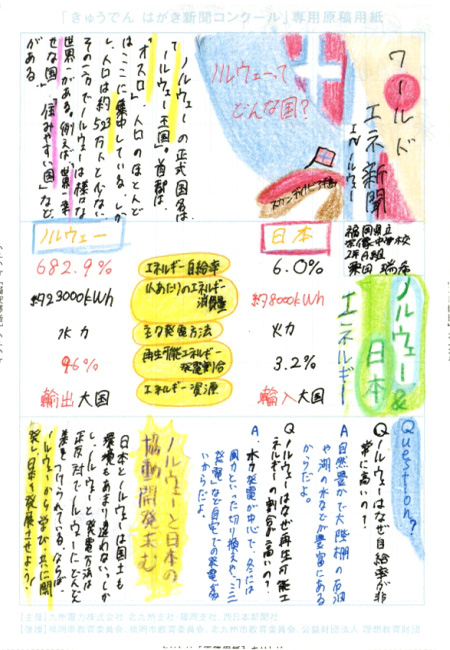 「きゅうでん はがき新聞コンクール」専用原稿用紙
ワールド
エネ新聞
inノルウェー
ノルウェーって
どんな国?
スカンディナビア半島
ノルウェーの正式国名は
「ノルウェー王国」。首都は
「オスロ」。人口のほとんど
はここに集中している。しか
し、人口は約523万人と少ない。
その一方でノルウェーは様々な
世界一がある。例えば、「世界一幸
せな国」「住みやすい国」など
がある。
福岡県立
中学校
2年
ノルウェー&
日本
エネルギー
日本
ノルウェー
6.0%
エネルギー自給率
682.9%
約8000kWh
1人あたりのエネルギー
消費量
約23000kWh
火力
主な発電方法
水力
3.2%
再生可能エネルギー
発電割合
96%
輸入大国
エネルギー資源
輸出大国
Question?
Qノルウェーはなぜ自給率が非
常に高いの?
A自然豊かで大陸棚の石油
や湖の水などが豊富にある
からだよ。
Qノルウェーはなぜ再生可能エ
ネルギーの割合が高いの?
A.水力発電が中心で、冬には
風力といった切り換えや、ミニ
発電など自宅での発電が多
いからだよ。
ノルウェーと日本の
協動開発求む
日本とノルウェーは国土も
環境もあまり違わない。しか
し、ノルウェーと発電方法は
正反対でノルウェーにどんどん
差をつけられている。ならば、
ノルウェーから学び、共に開
発し日本を発展させよう!
【主催】九州電力株式会社 北九州支社・福岡支社、西日本新聞社
【後援】福岡県教育委員会、福岡市教育委員会、北九州市教育委員会、公益財団法人 理想教育財団